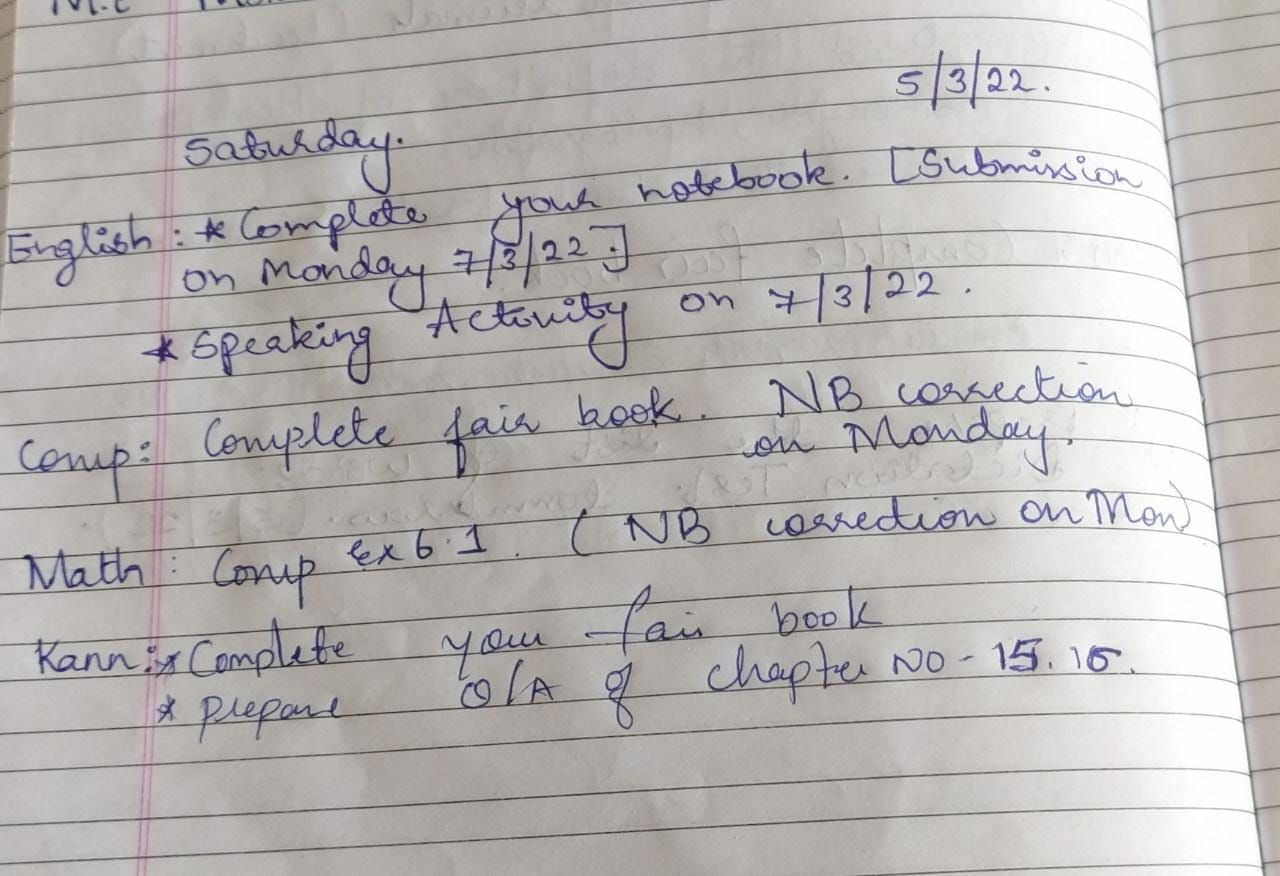 M.C
5/3/22.
Saturday.
English : * Complete your notebook. [Submission
on Monday 7/3/22.]
* Speaking Activity on 7/3/22.
Comp: Complete fair book. NB correction
on Monday.
Math : Comp Ex 6.1. (NB correction on Mon)
Kann: * Complete your fair book
* prepare Q/A of chapter NO - 15.16.